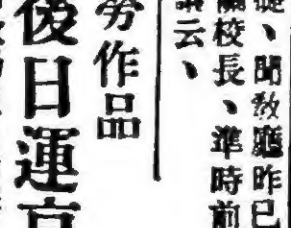 、聞教廳昨已
校長、準時前
云、
勞作品
後日運京